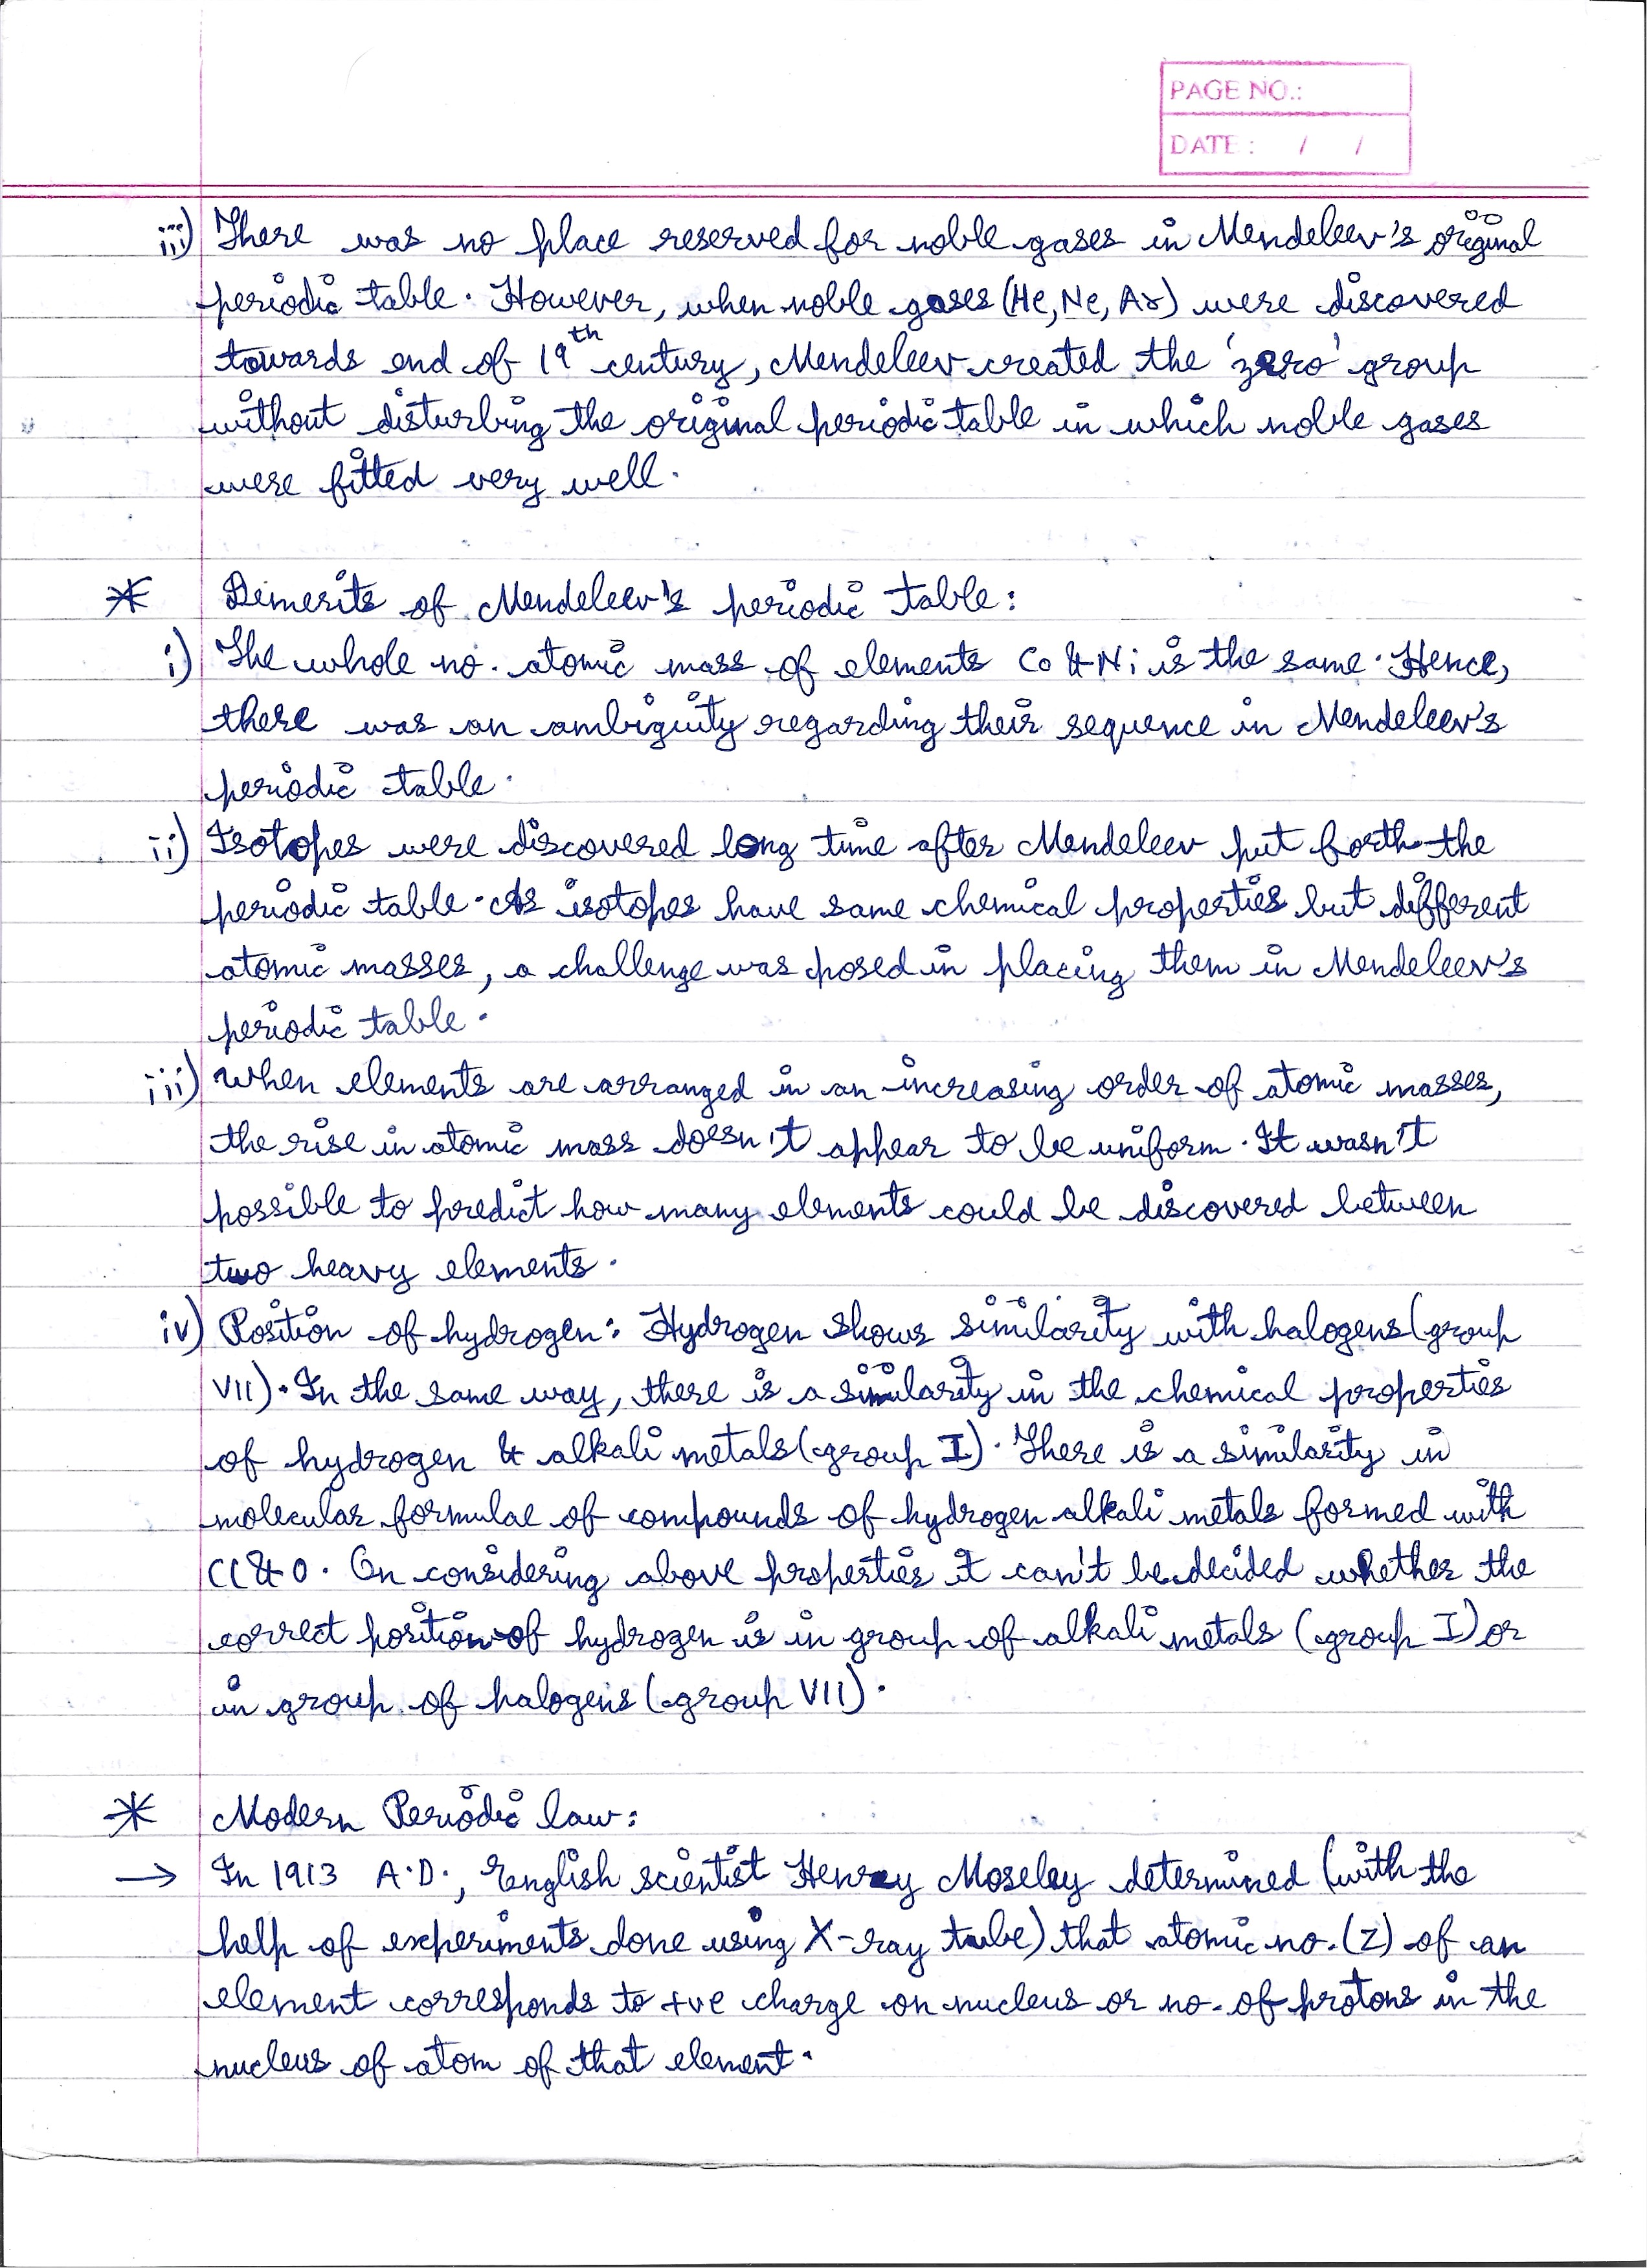 PAGE NO.:
DATE : / /
iii) There was no place reserved for noble gases in Mendeleev's original
periodic table. However, when noble gases (He, Ne, Ar) were discovered
towards end of 19th century, Mendeleev created the 'zero' group
without disturbing the original periodic table in which noble gases
were fitted very well.
* Demerits of Mendeleev's periodic table:
i) The whole no. atomic mass of elements Co & Ni is the same. Hence,
there was an ambiguity regarding their sequence in Mendeleev's
periodic table.
ii) Isotopes were discovered long time after Mendeleev put forth the
periodic table. As isotopes have same chemical properties but different
atomic masses, a challenge was posed in placing them in Mendeleev's
periodic table.
iii) When elements are arranged in an increasing order of atomic masses,
the rise in atomic mass doesn't appear to be uniform. It wasn't
possible to predict how many elements could be discovered between
two heavy elements.
iv) Position of hydrogen: Hydrogen shows similarity with halogens (group
VII). In the same way, there is a similarity in the chemical properties
of hydrogen & alkali metals (group I). There is a similarity in
molecular formulae of compounds of hydrogen alkali metals formed with
Cl & O. On considering above properties it can't be decided whether the
correct position of hydrogen is in group of alkali metals (group I) or
in group of halogens (group VII).
* Modern Periodic law:
→ In 1913 A.D., English scientist Henry Moseley determined (with the
help of experiments done using X-ray tube) that atomic no. (Z) of an
element corresponds to +ve charge on nucleus or no. of protons in the
nucleus of atom of that element.